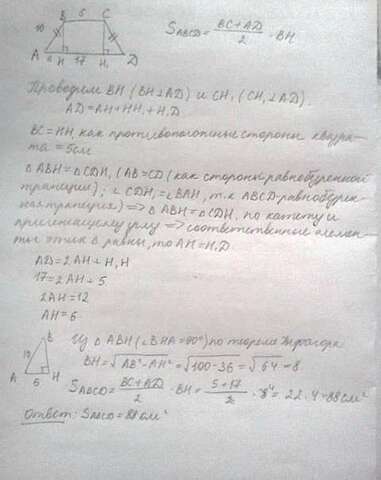 B 5 C
10
A 6 H 17 H₁ D
S_ABCD = (BC+AD)/2 · BH
Проводим BH (BH⊥AD) и CH₁ (CH₁⊥AD).
AD=AH+HH₁+H₁D
BC=HH₁ как противоположные стороны квадра-
та = 5см
△ABH=△CDH₁ (AB=CD (как стороны равнобуренной
трапеции); ∠CDH₁=∠BAH, т.к ABCD-равнобурен-
ная трапеция) => △ABH=△CDH₁ по катету и
прилежащему углу => соответственные элемен-
ты этих △ равны, то AH=H₁D.
AD=2AH+H₁H
17=2AH+5
2AH=12
AH=6
B
10
A 6 H
Из △ABH (∠BHA=90°) по теореме Пифагора
BH=√(AB²-AH²)=√(100-36)=√64=8
S_ABCD=(BC+AD)/2 · BH=(5+17)/2 · 8⁴=22·4=88см²
Ответ: S_ABCD=88см²